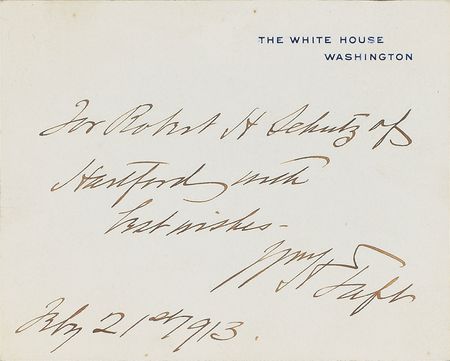 THE WHITE HOUSE
WASHINGTON
For Robert H Schutz of
Hartford with
best wishes -
Wm H Taft
Feby 21st 1913.